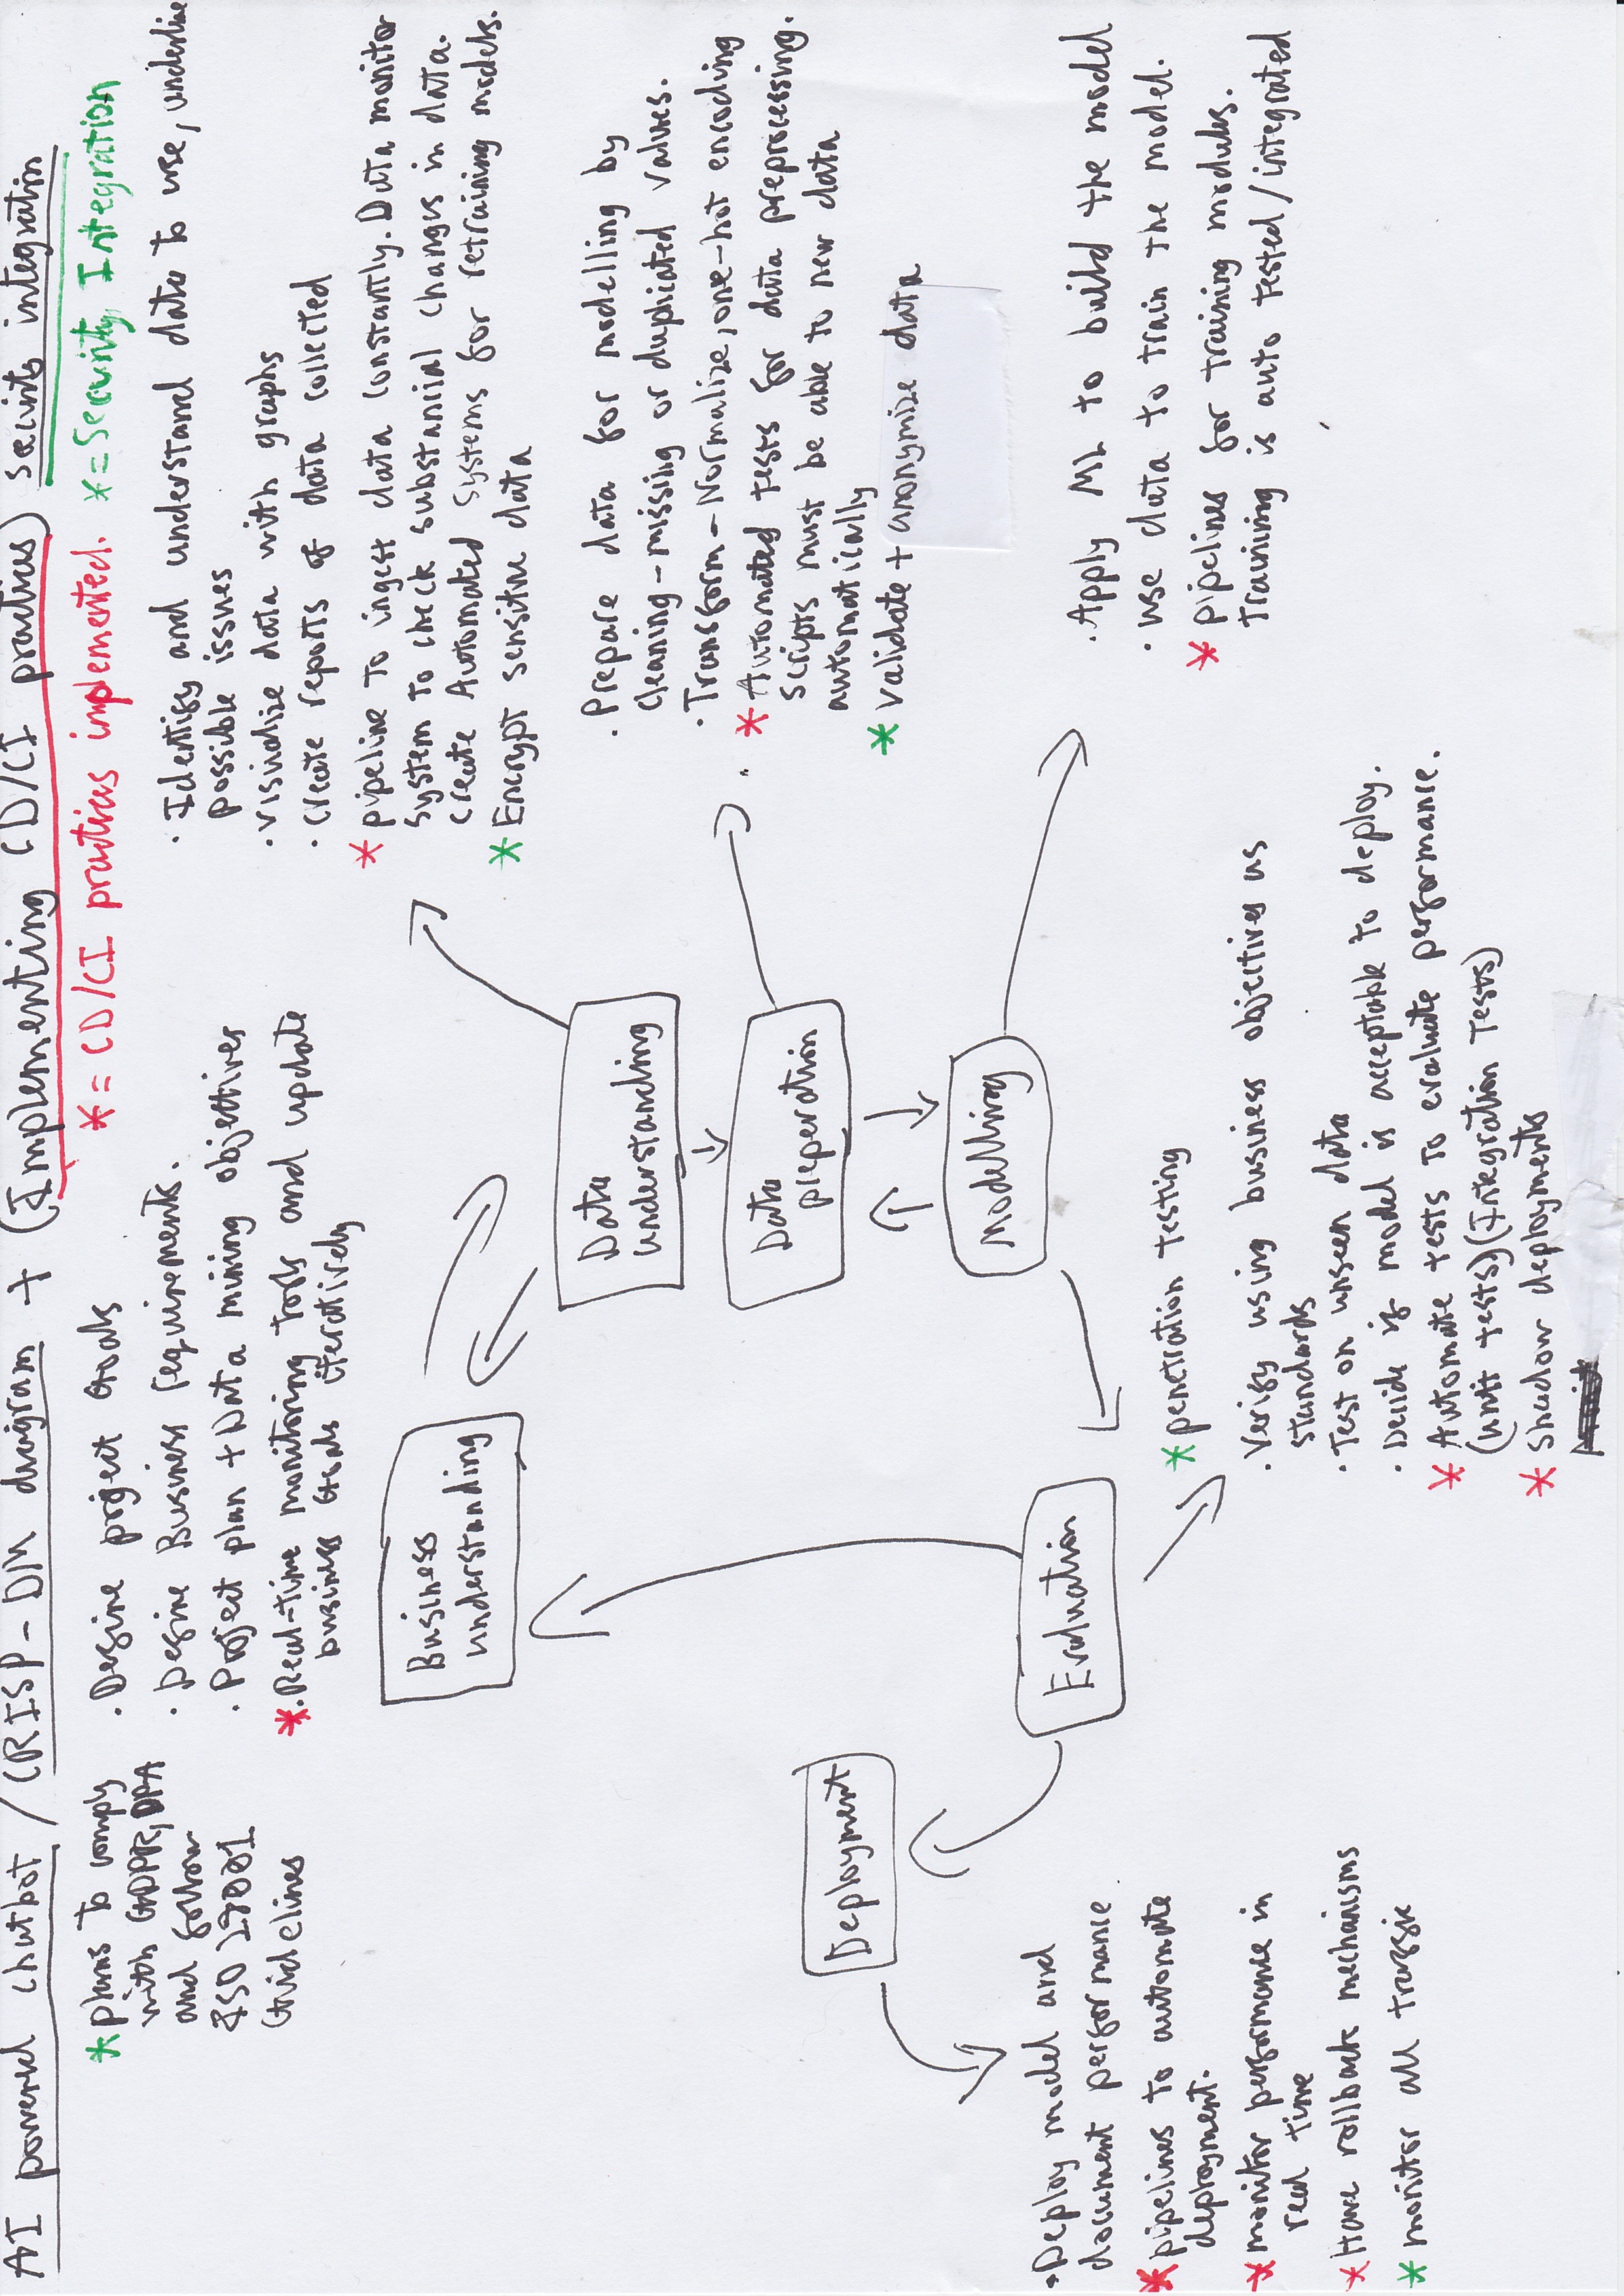 AI powered chatbot / CRISP-DM diagram + (Implementing CD/CI practices) security integration
* = CD/CI practices implemented. * = Security Integration
* plans to comply
with GDPR, DPA
and follow
ISO 27001
Guidelines
. Define project Goals
. Define Business requirements.
. Project plan + Data mining objectives
*. Real-time monitoring tools and update
business Goals iteratively
Business
understanding
. Identify and understand data to use, underline
possible issues
. visualize data with graphs
. create reports of data collected
* pipeline to ingest data constantly. Data monitor
system to check substanial changes in data.
create Automated systems for retraining models.
* Encrypt sensitive data
Data
understanding
Data
preperation
. prepare data for modelling by
cleaning - missing or duplicated values.
. Transform - Normalize, one-hot encoding
* Automated tests for data preprocessing.
scripts must be able to new data
automatically
* validate + anonymize data
Modelling
. Apply ML to build the model
. use data to train the model.
* pipelines for training modules.
Training is auto tested/integrated
Evaluation
* penetration testing
. Verify using business objectives as
standards
. Test on unseen data
. Decide if model is acceptable to deploy.
* Automate tests to evaluate performance.
(unit tests) (Integration Tests)
* Shadow deployments
Deployment
. Deploy model and
document performance
* pipelines to automate
deployment.
* monitor performance in
real time
* Have rollback mechanisms
* monitor all traffic